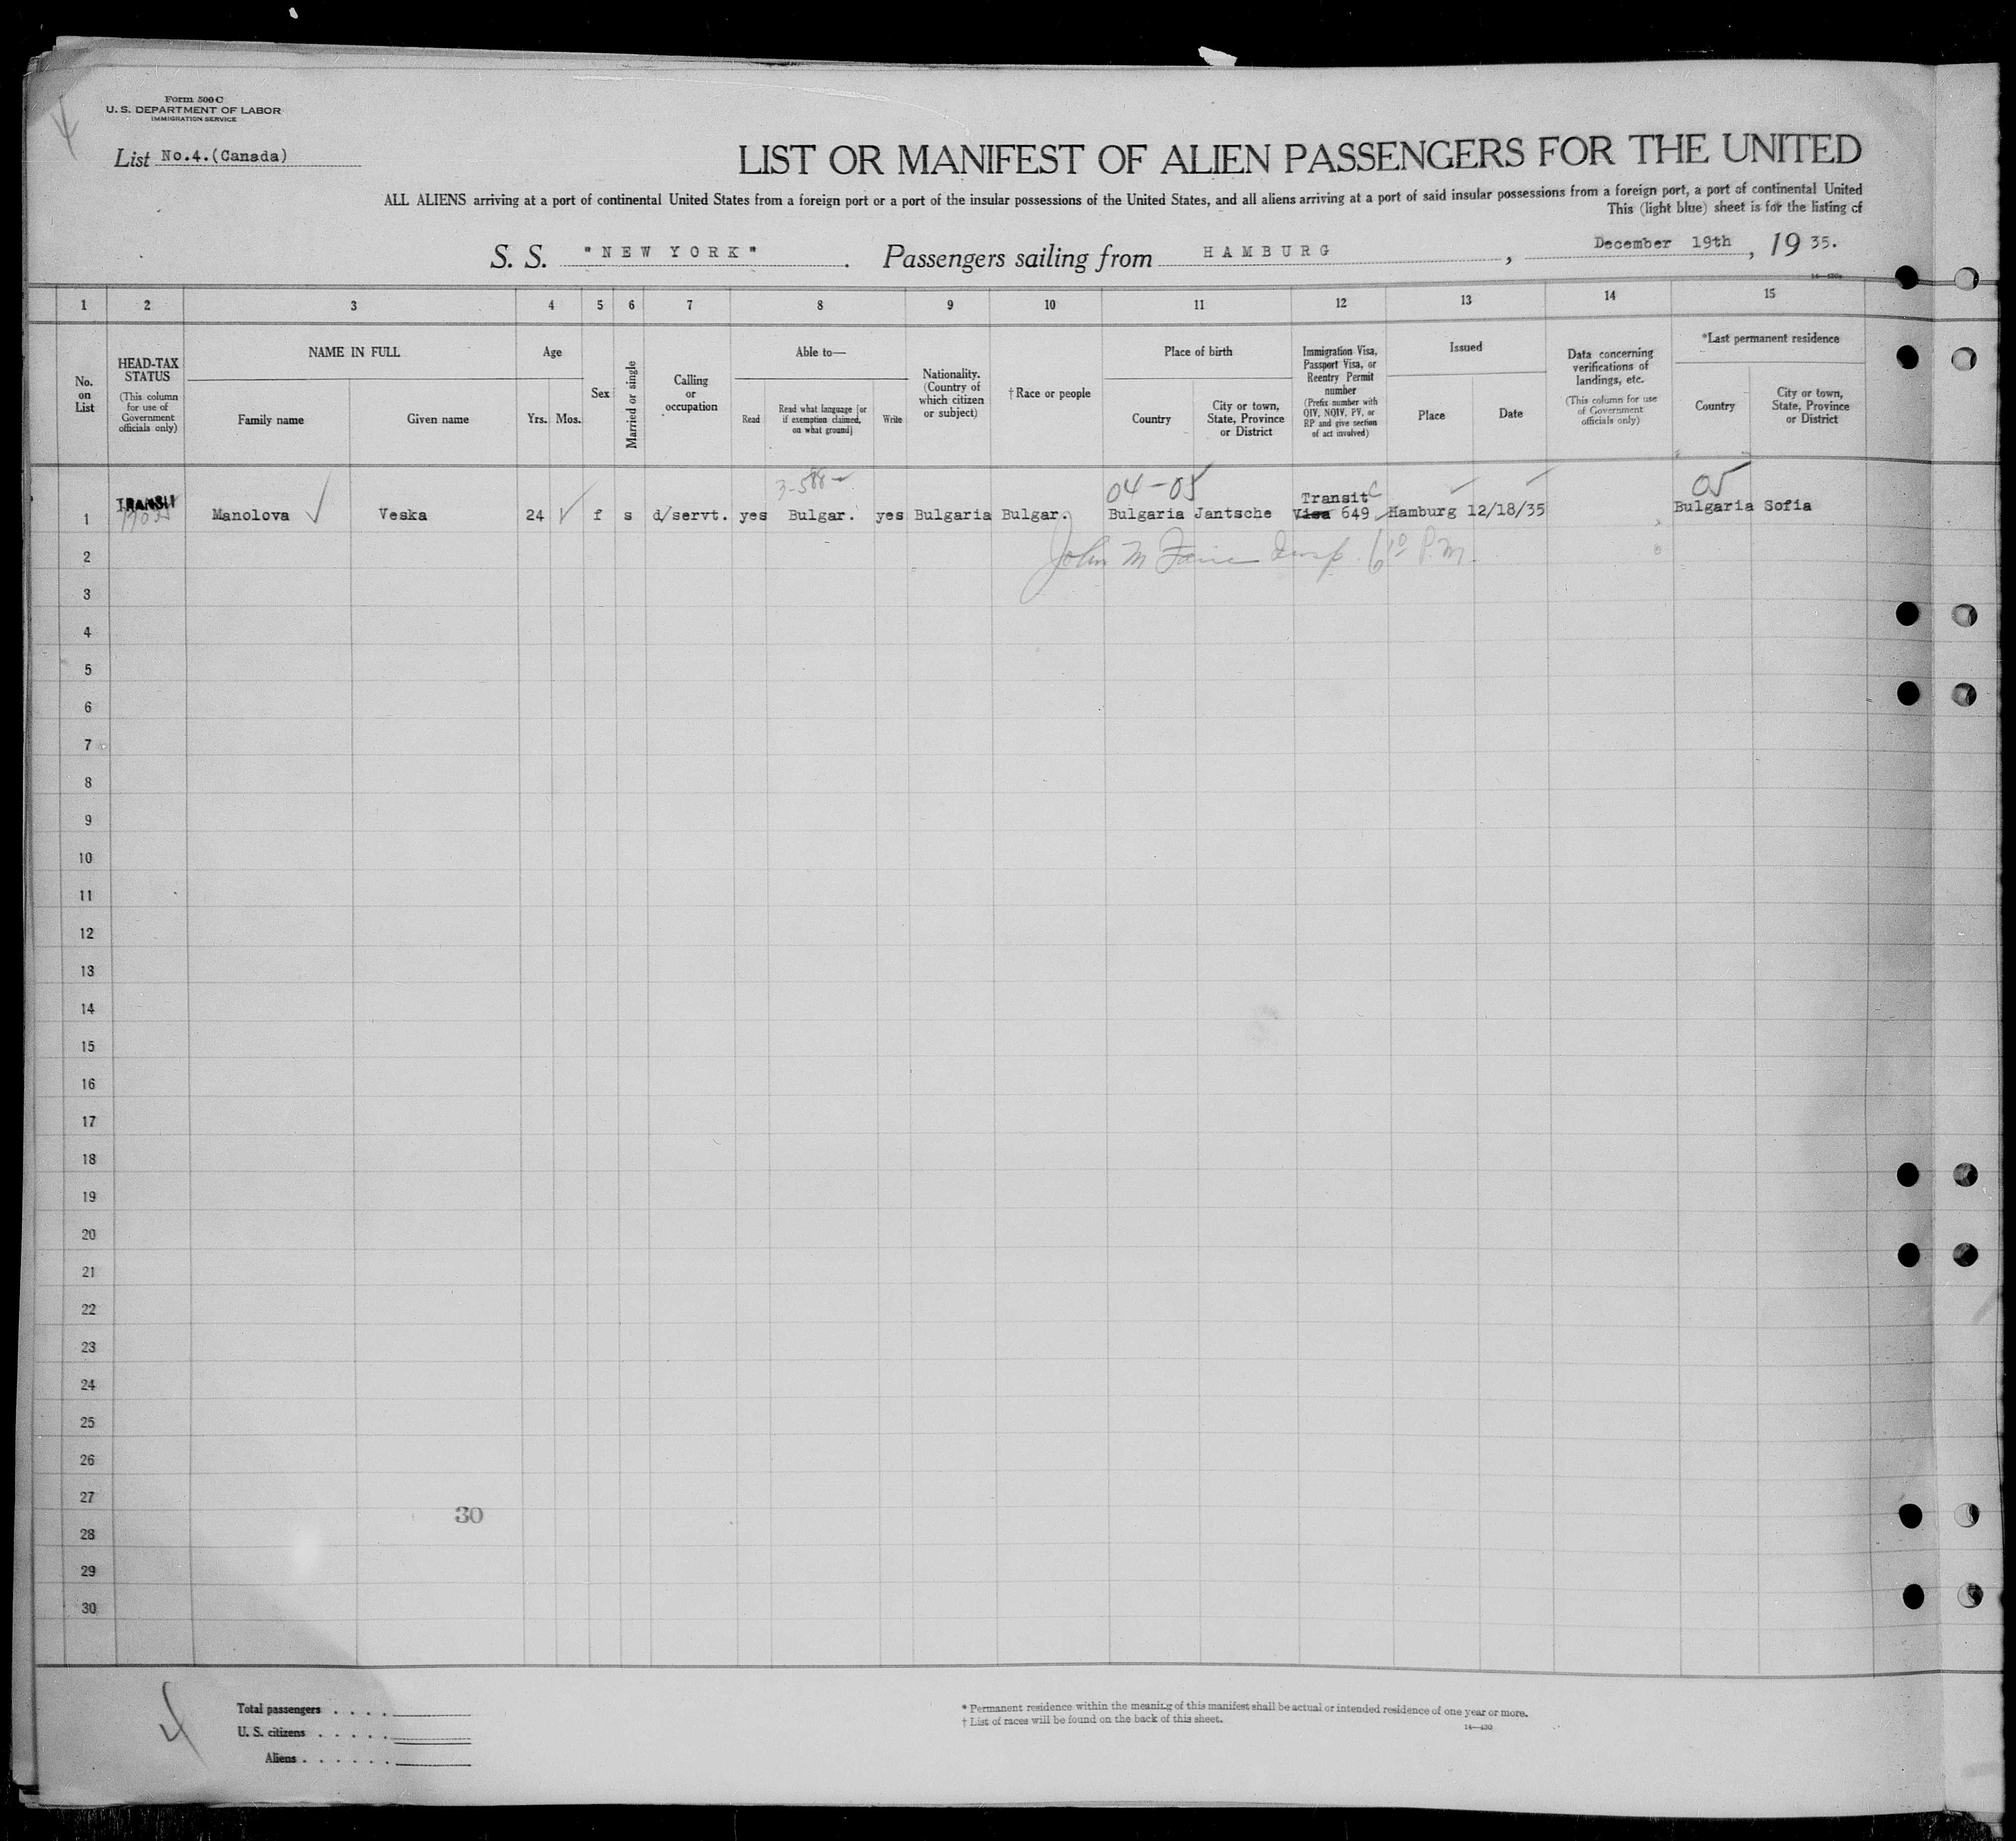 Form 500 C
U. S. DEPARTMENT OF LABOR
IMMIGRATION SERVICE
List No.4.(Canada)
LIST OR MANIFEST OF ALIEN PASSENGERS FOR THE UNITED
ALL ALIENS arriving at a port of continental United States from a foreign port or a port of the insular possessions of the United States, and all aliens arriving at a port of said insular possessions from a foreign port, a port of continental United
This (light blue) sheet is for the listing of
S. S. "NEW YORK". Passengers sailing from HAMBURG, December 19th, 1935.
1 2 3 4 5 6 7 8 9 10 11 12 13 14 15
No. on List
HEAD-TAX STATUS (This column for use of Government officials only)
NAME IN FULL
Family name
Given name
Age
Yrs. Mos.
Sex
Married or single
Calling or occupation
Able to—
Read
Read what language [or if exemption claimed, on what ground]
Write
Nationality. (Country of which citizen or subject)
†Race or people
Place of birth
Country
City or town, State, Province or District
Immigration Visa, Passport Visa, or Reentry Permit number (Prefix number with QIV, NQIV, PV, or RP and give section of act involved)
Issued
Place
Date
Data concerning verifications of landings, etc. (This column for use of Government officials only)
*Last permanent residence
Country
City or town, State, Province or District
3-588 04-05 05
TRANSIT
1 Manolova Veska 24 f s d/servt. yes Bulgar. yes Bulgaria Bulgar. Bulgaria Jantsche Transit Visa 649 Hamburg 12/18/35 Bulgaria Sofia
2 John M Insp. 6 10 P.M.
3
4
5
6
7
8
9
10
11
12
13
14
15
16
17
18
19
20
21
22
23
24
25
26
27
30
28
29
30
4
Total passengers . . . .
U. S. citizens . . . . .
Aliens . . . . . .
* Permanent residence within the meaning of this manifest shall be actual or intended residence of one year or more.
† List of races will be found on the back of this sheet.
14—430